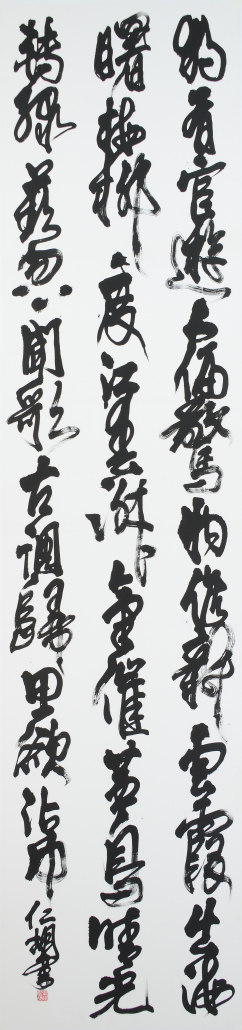 獨有宦遊人偏驚物候新雲霞出海
曙梅柳度江春淑氣催黃鳥晴光
轉綠蘋忽聞歌古調歸思欲沾巾 仁胡書